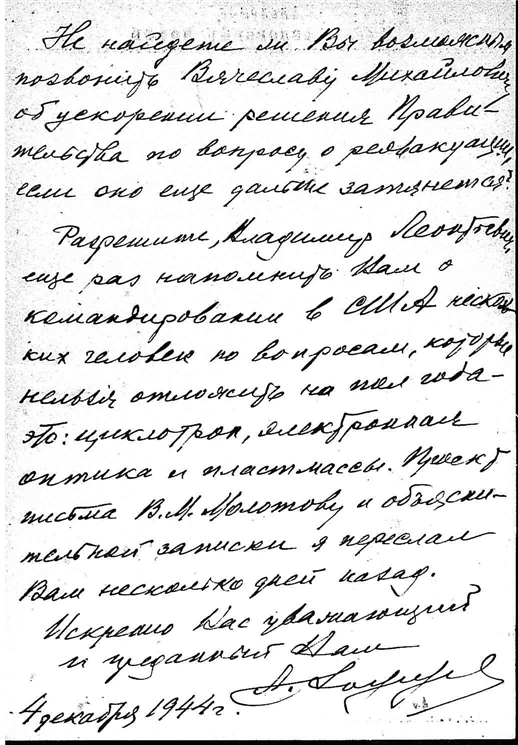 Не найдете ли Вы возможным
позвонить Вячеславу Михайловичу
об ускорении решения Прави-
тельства по вопросу о реэвакуации,
если оно еще дальше затянется?
Разрешите, Владимир Леонтьевич,
еще раз напомнить Вам о
командировании в США несколь-
ких человек по вопросам, которые
нельзя отложить на пол года -
это: циклотрон, электронная
оптика и пластмассы. Проект
письма В.М. Молотову и объясни-
тельной записки я переслал
Вам несколько дней назад.
Искренно Вас уважающий
и преданный Вам
А. Иоффе
4 декабря 1944 г.